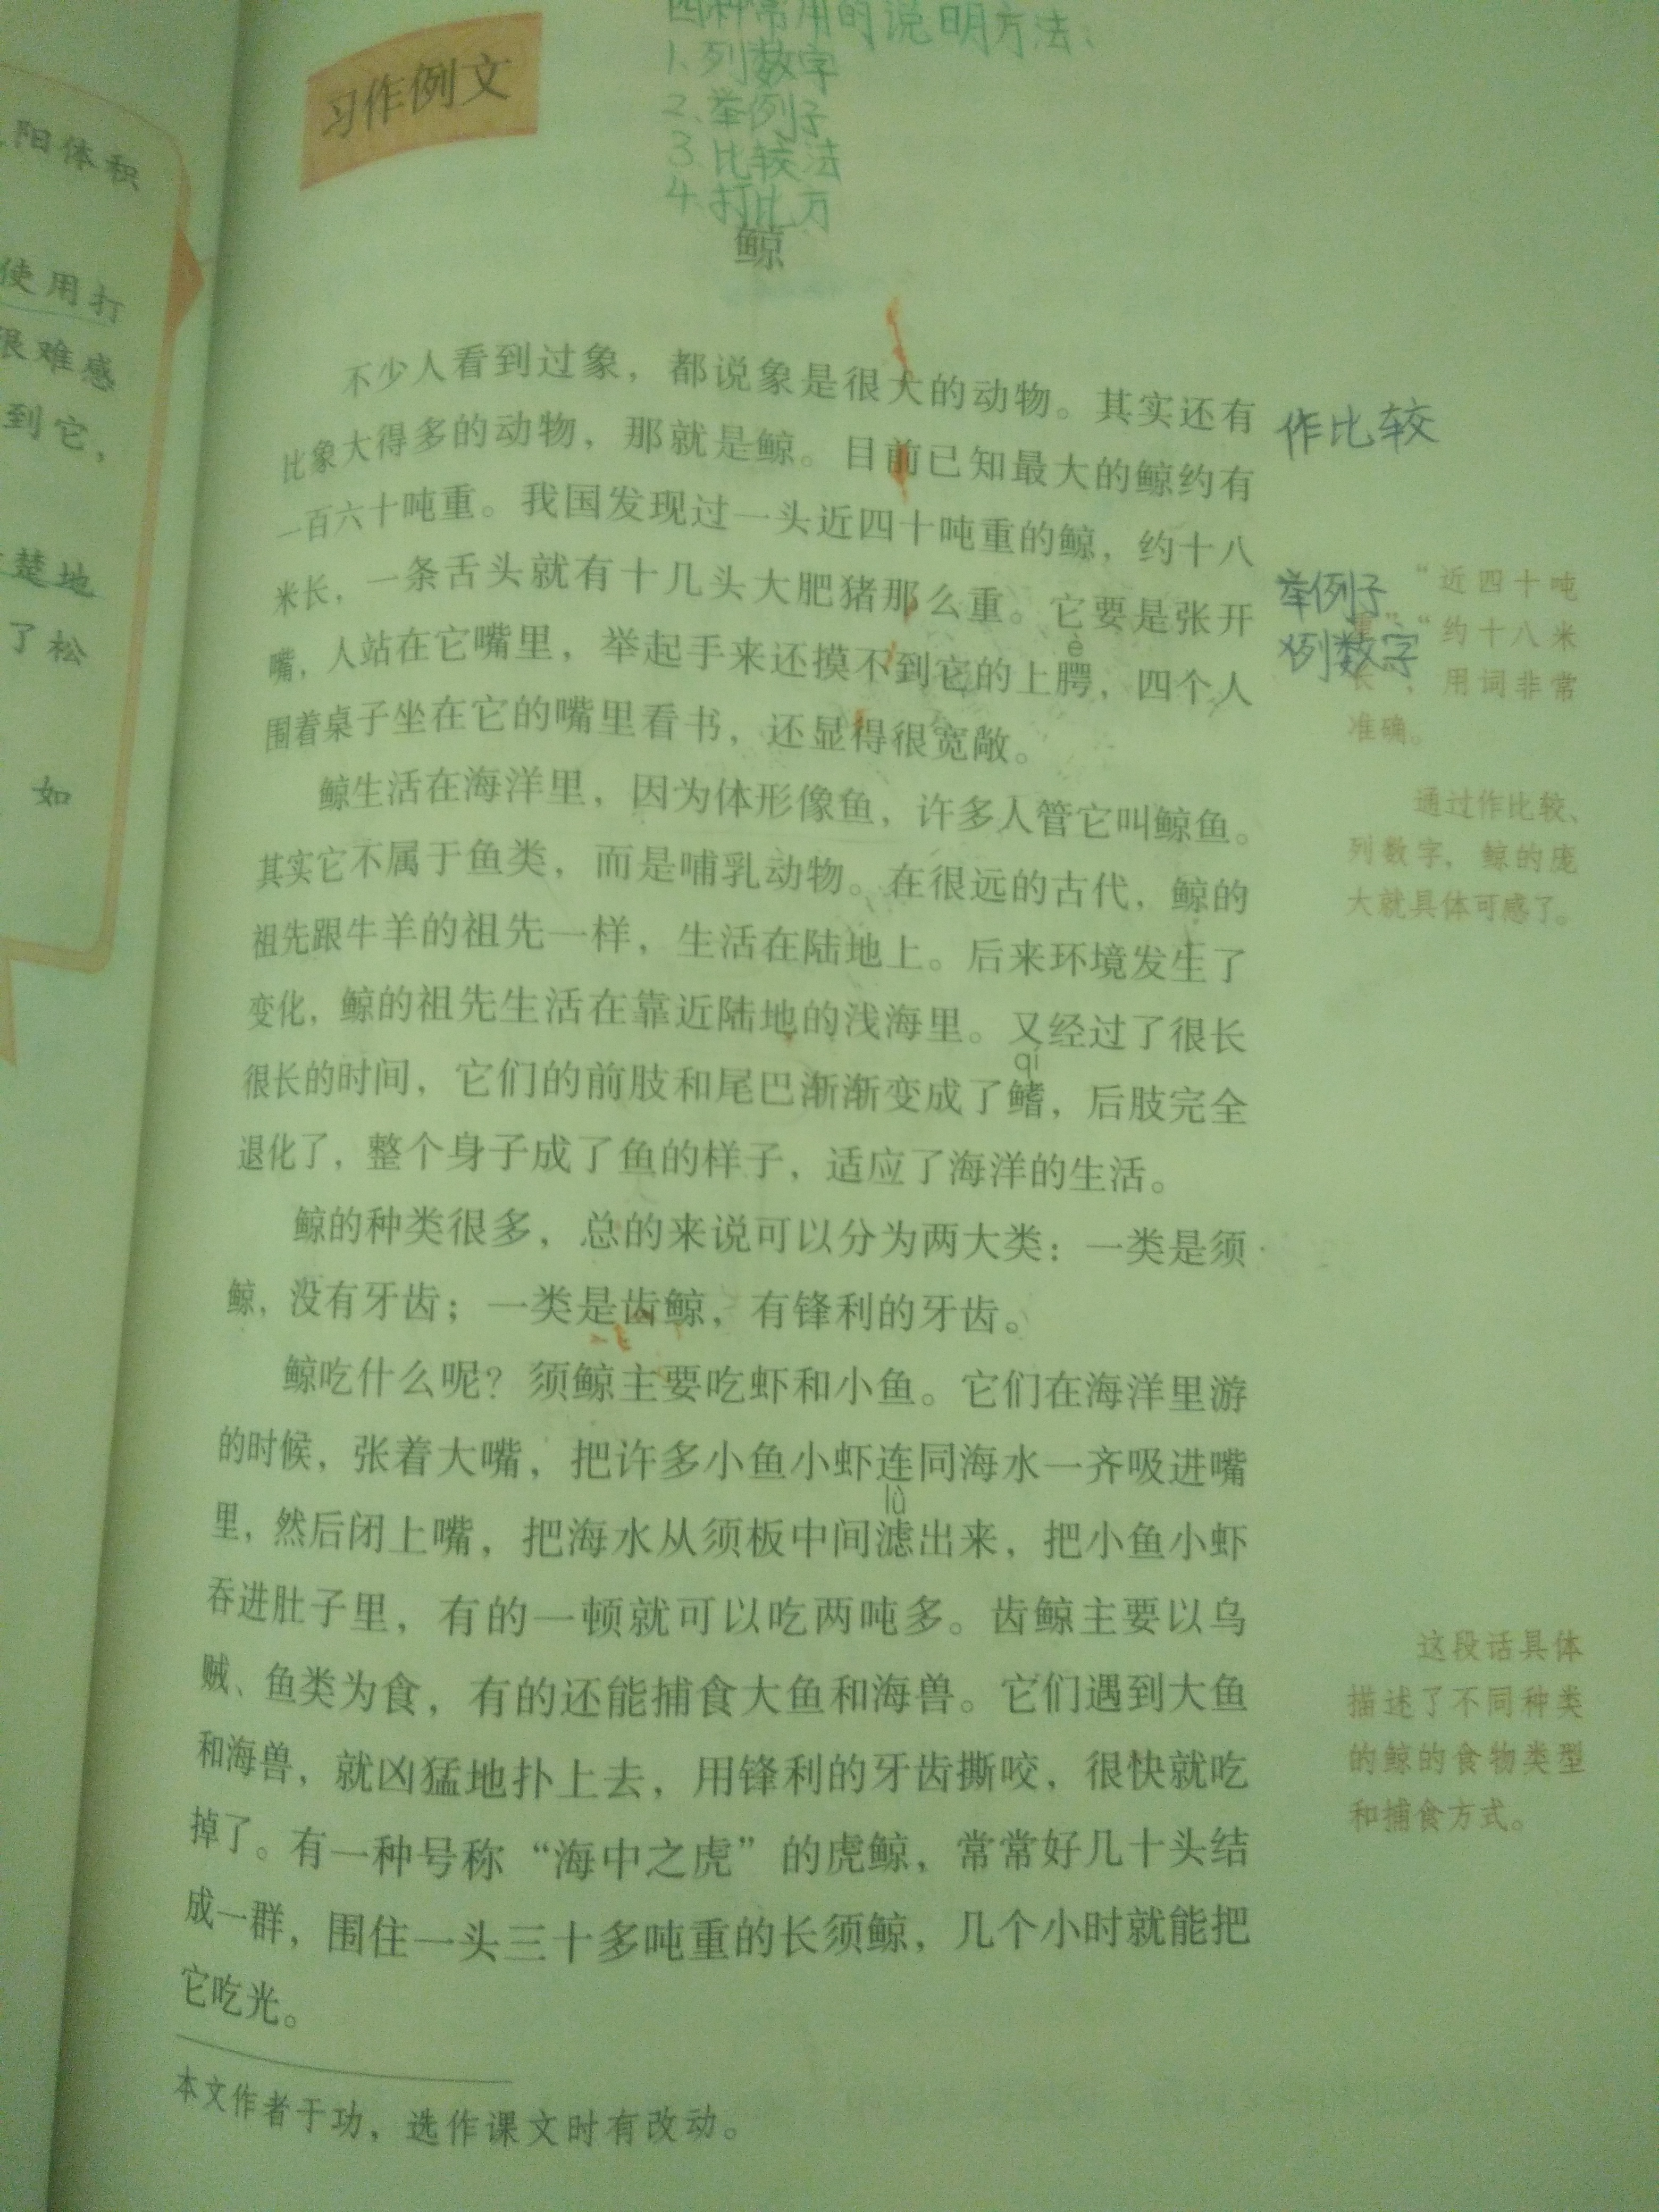 阳体积
使用打
很难感
到它，
楚地
了松
如
习作例文
四种常用的说明方法：
1、列数字
2、举例子
3、比较法
4、打比方
鲸
不少人看到过象，都说象是很大的动物。其实还有
比象大得多的动物，那就是鲸。目前已知最大的鲸约有
一百六十吨重。我国发现过一头近四十吨重的鲸，约十八
米长，一条舌头就有十几头大肥猪那么重。它要是张开
è
嘴，人站在它嘴里，举起手来还摸不到它的上腭，四个人
围着桌子坐在它的嘴里看书，还显得很宽敞。
鲸生活在海洋里，因为体形像鱼，许多人管它叫鲸鱼。
其实它不属于鱼类，而是哺乳动物。在很远的古代，鲸的
祖先跟牛羊的祖先一样，生活在陆地上。后来环境发生了
变化，鲸的祖先生活在靠近陆地的浅海里。又经过了很长
qí
很长的时间，它们的前肢和尾巴渐渐变成了鳍，后肢完全
退化了，整个身子成了鱼的样子，适应了海洋的生活。
鲸的种类很多，总的来说可以分为两大类：一类是须
鲸，没有牙齿；一类是齿鲸，有锋利的牙齿。
鲸吃什么呢？须鲸主要吃虾和小鱼。它们在海洋里游
的时候，张着大嘴，把许多小鱼小虾连同海水一齐吸进嘴
lǜ
里，然后闭上嘴，把海水从须板中间滤出来，把小鱼小虾
吞进肚子里，有的一顿就可以吃两吨多。齿鲸主要以乌
贼、鱼类为食，有的还能捕食大鱼和海兽。它们遇到大鱼
和海兽，就凶猛地扑上去，用锋利的牙齿撕咬，很快就吃
掉了。有一种号称“海中之虎”的虎鲸，常常好几十头结
成一群，围住一头三十多吨重的长须鲸，几个小时就能把
它吃光。
本文作者于功，选作课文时有改动。
作比较
举例子
列数字
“近四十吨
重”“约十八米
长”，用词非常
准确。
通过作比较、
列数字，鲸的庞
大就具体可感了。
这段话具体
描述了不同种类
的鲸的食物类型
和捕食方式。